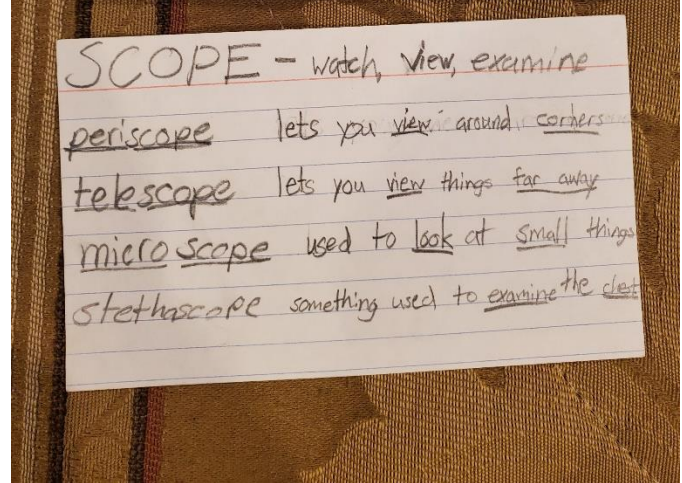 SCOPE - watch, view, examine
periscope lets you view around corners
telescope lets you view things far away
microscope used to look at small things
stethascope something used to examine the chest